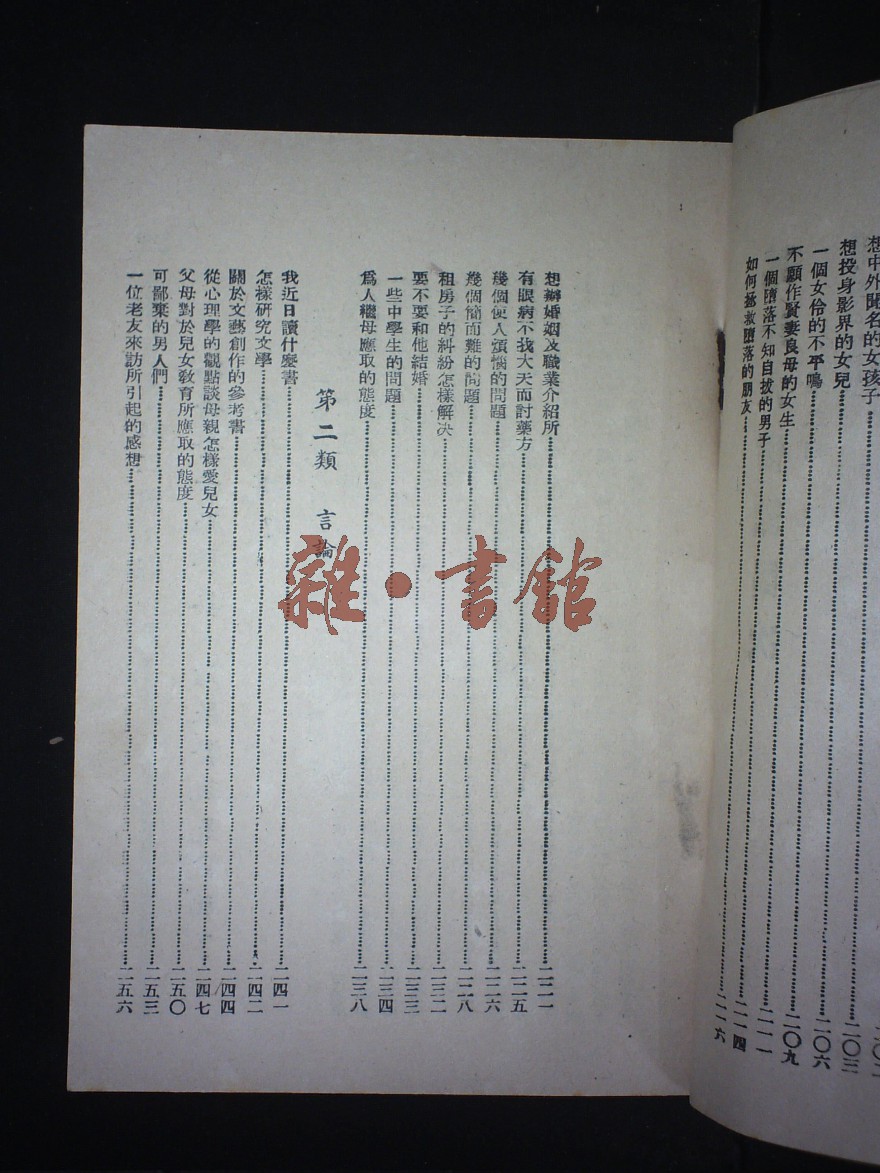 想中外聞名的女孩子
想投身影界的女兒……二〇三
一個女伶的不平鳴……二〇六
不願作賢妻良母的女生……二〇九
一個墮落不知自拔的男子……二一一
如何拯救墮落的朋友……二一六
想辦婚姻及職業介紹所……二二一
有眼病不找大夫而討藥方……二二五
幾個使人煩惱的問題……二二六
幾個簡而難的問題……二二八
租房子的糾紛怎樣解决……二三二
要不要和他結婚……二三三
一些中學生的問題……二三四
爲人繼母應取的態度……二三八
第二類 言論
我近日讀什麽書……二四一
怎樣研究文學……二四二
關於文藝創作的參考書……二四四
從心理學的觀點談母親怎樣愛兒女……二四七
父母對於兒女敎育所應取的態度……二五〇
可鄙棄的男人們……二五三
一位老友來訪所引起的感想……二五六
雜·書館